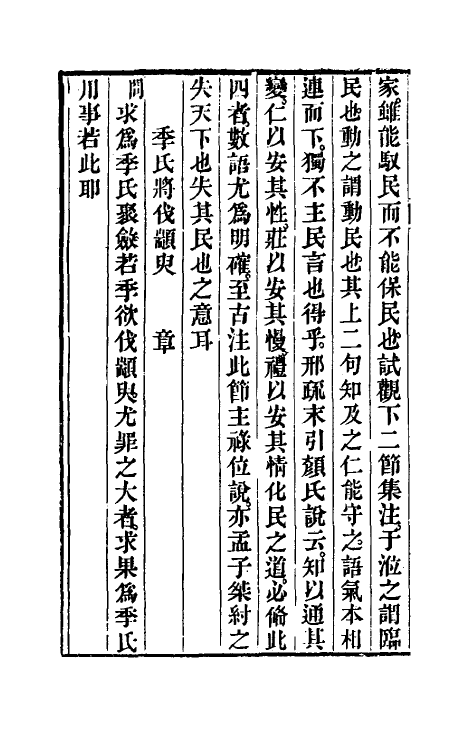 家雖能馭民而不能保民也試觀下二節集注于涖之謂臨
民也動之謂動民也其上二句知及之仁能守之語氣本相
連而下獨不主民言也得乎邢疏末引顏氏說云知以通其
變仁以安其性莊以安其慢禮以安其情化民之道必備此
四者數語尤為明確至古注此節主祿位說亦孟子桀紂之
失天下也失其民也之意耳
季氏將伐顓臾　章
問求為季氏聚斂若季欲伐顓臾尤罪之大者求果為季氏
用事若此耶